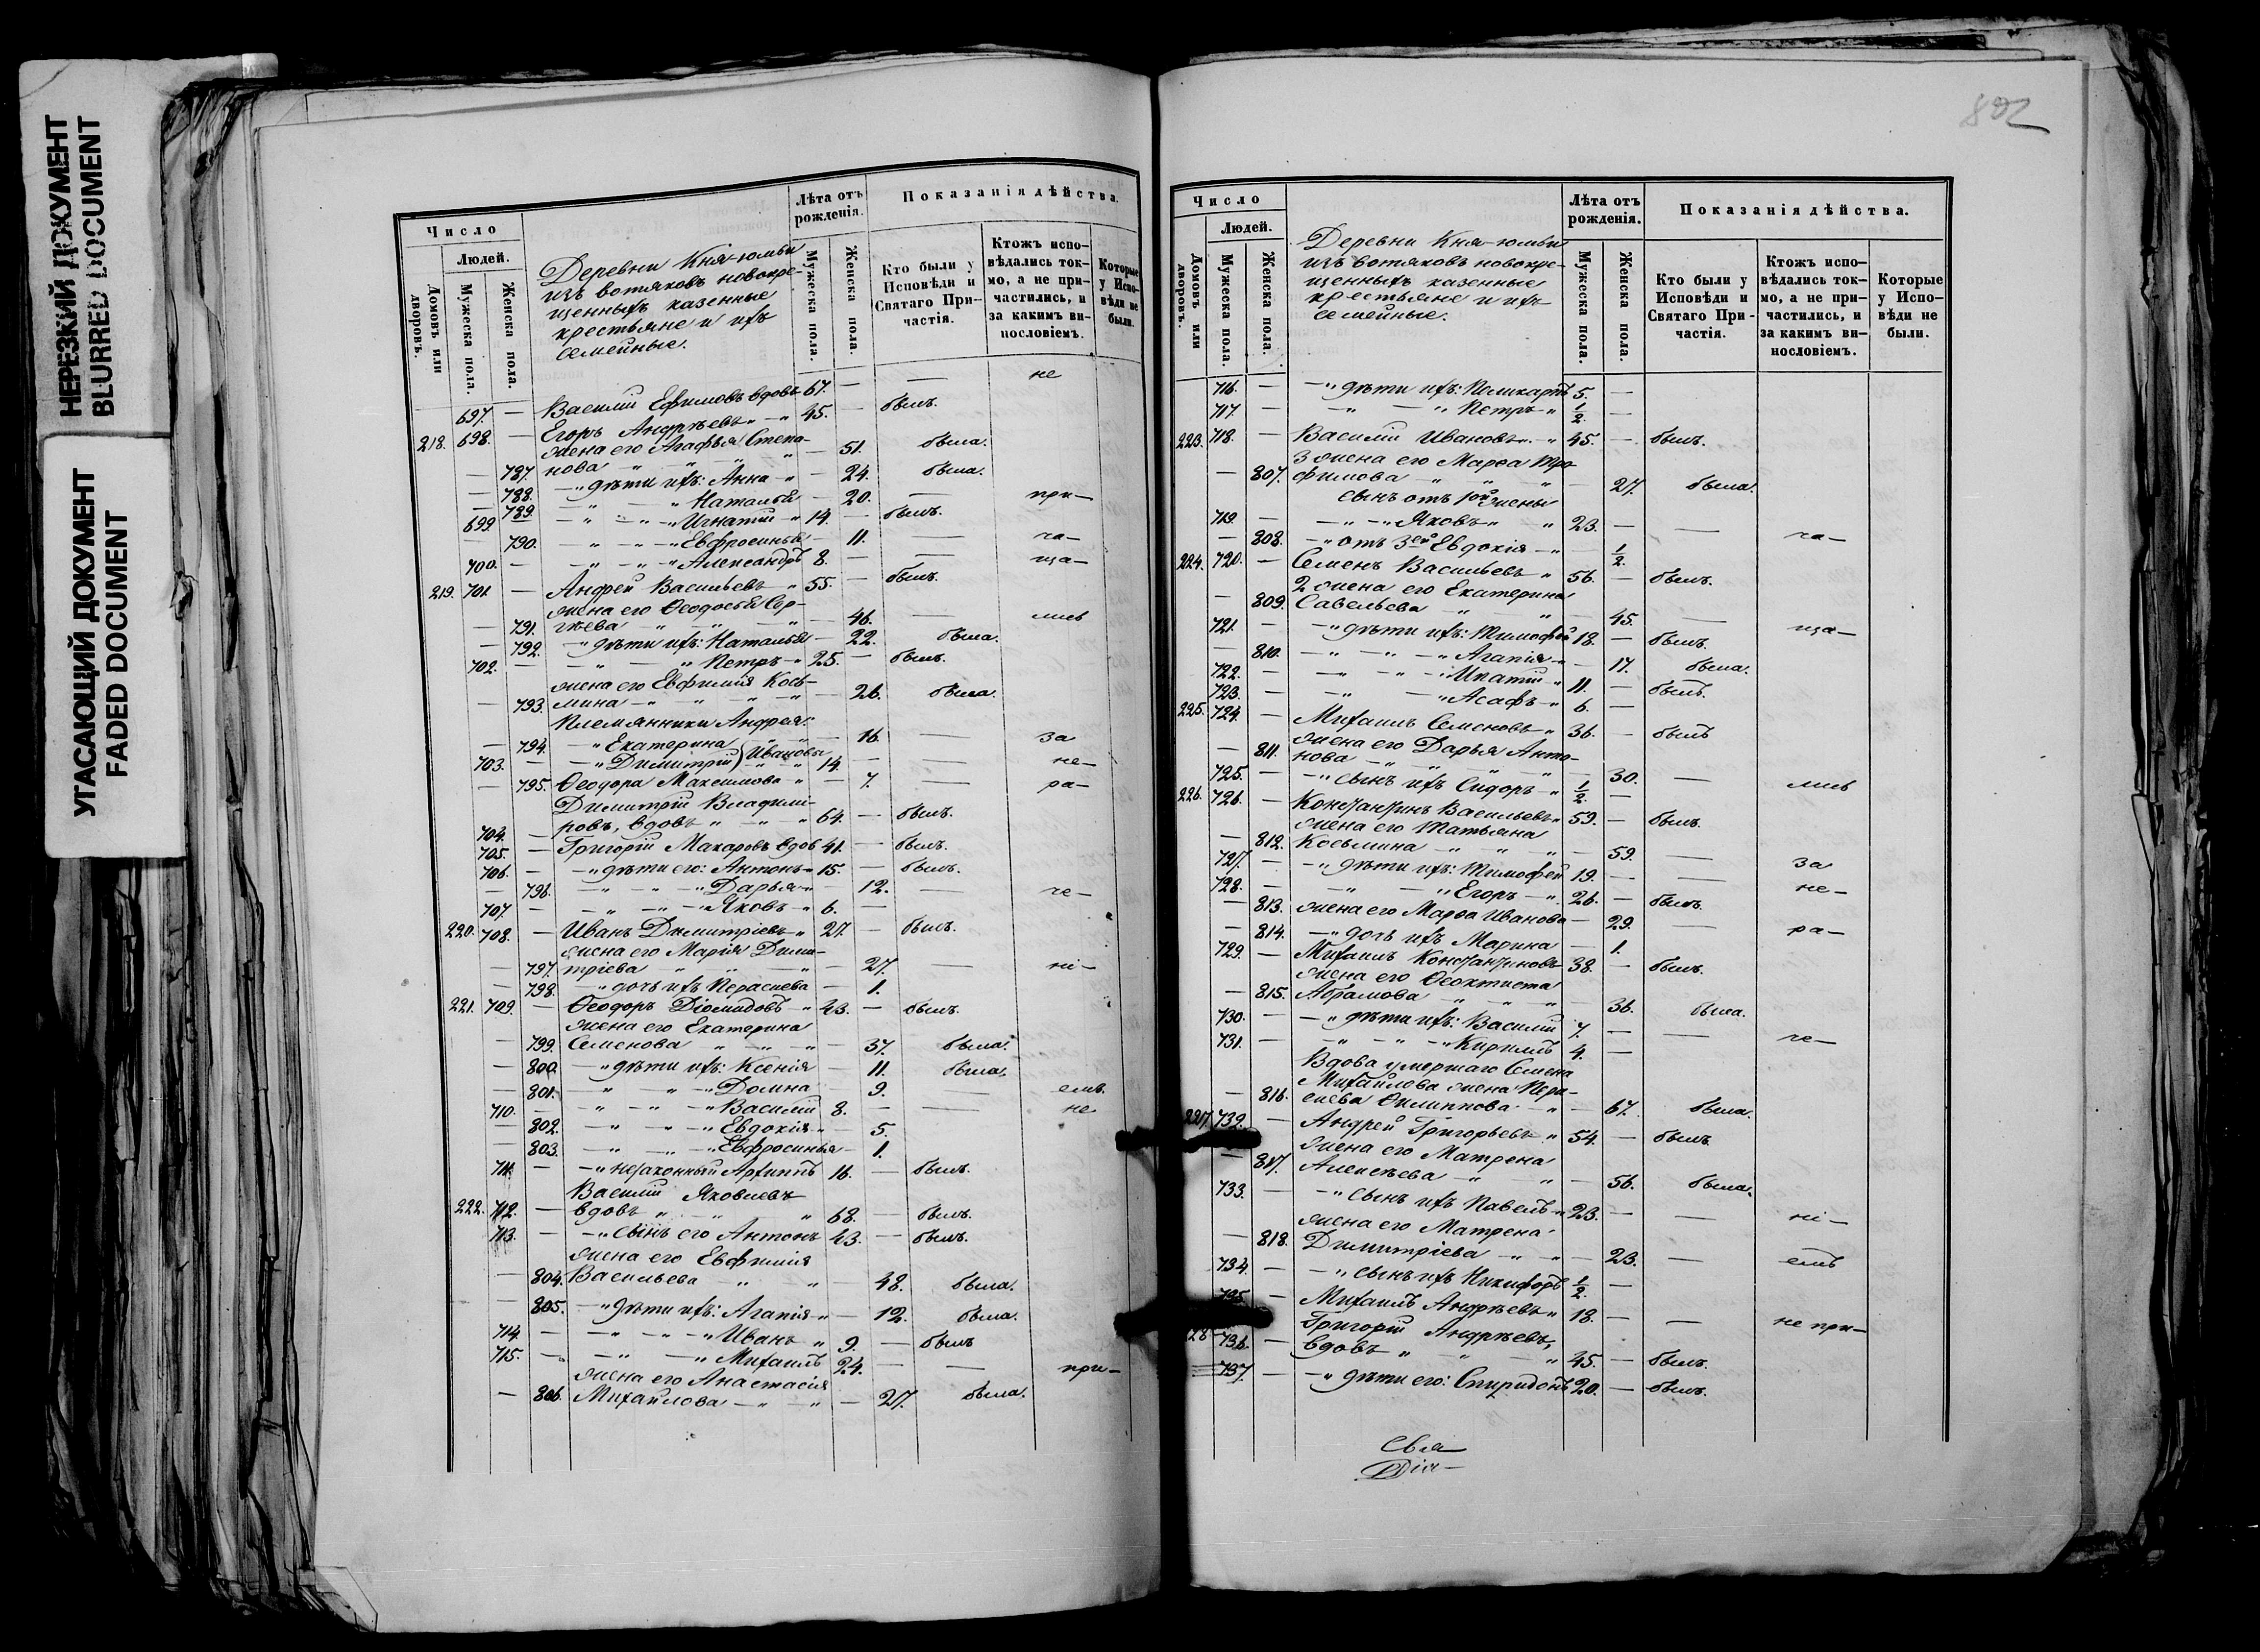 НЕРЕЗКИЙ ДОКУМЕНТ
BLURRED DOCUMENT
УГАСАЮЩИЙ ДОКУМЕНТ
FADED DOCUMENT
Число
Людей.
Домовъ или дворовъ.
Мужеска пола.
Женска пола.
Деревни Кня-юмьи
изъ вотяковъ новокре-
щенныхъ казенные
крестьяне и ихъ
семейные.
Лѣта отъ рожденія.
Мужеска пола.
Женска пола.
Показанія дѣйства.
Кто были у Исповѣди и Святаго При-частія.
Ктожъ испо-вѣдались ток-мо, а не при-частились, и за какимъ ви-нословіемъ.
Которые у Испо-вѣди не были.
697. — Василій Ефимовъ вдовъ 67. — — не
218. 698. — Егоръ Андрѣевъ 45. — былъ.
жена его Агафья Степа-
— 787. нова — 51. была.
— 788. дѣти ихъ: Анна — 24. была.
— 789. Наталья — 20. — при-
699 — Игнатій 14. — былъ.
790. Евфросинья — 11. — ча-
700. — Александръ 8. — — ща-
219. 701 — Андрей Васильевъ 55. — былъ.
жена его Ѳеодосья Сер-
— 791. гѣева — 46. — лись
— 792. дѣти ихъ: Наталья — 22. была.
702. — Петръ 25. — былъ.
жена его Евфимія Козь-
— 793. мина — 26. была.
Племянники Андрея:
— 794. Екатерина — 16. — за
703. — Димитрій } Ивановы 14. — — не-
— 795. Ѳеодора Максимова — 7. — ра-
Димитрій Владими-
704. — ровъ, вдовъ 64. — былъ.
705. — Григорій Макаровъ вдов 41. — былъ.
706. — дѣти его: Антонъ 15. — былъ.
— 796. Дарья — 12. — че-
707. — Яковъ 6. —
220. 708. — Иванъ Димитріевъ 27. — былъ.
жена его Марія Дими-
— 797. тріева — 27. — ні-
— 798. дочь ихъ Параскева — 1.
221. 709. — Ѳеодоръ Діомидовъ 43. — былъ.
жена его Екатерина
— 799. Семенова — 37. была.
— 800. дѣти ихъ: Ксенія — 11. была.
— 801. Домна 9. — емъ.
710. — Василій 8. — — не
— 802. Евдокія — 5.
— 803. Евфросинья — 1.
711. — незаконный Архиппъ 16. — былъ.
Василій Яковлевъ
222. 712. — вдовъ 68. — былъ.
713. — сынъ его Антонъ 43. — былъ.
жена его Евфимія
— 804. Васильева — 48. была.
— 805. дѣти ихъ: Агапія — 12. была.
714. — Иванъ 9. — былъ
715. — Михаилъ 24. — — при-
жена его Анастасія
— 806. Михайлова — 27. была.
802
Число
Людей.
Домовъ или дворовъ.
Мужеска пола.
Женска пола.
Деревни Кня-юмьи
изъ вотяковъ новокре-
щенныхъ казенные
крестьяне и ихъ
семейные.
Лѣта отъ рожденія.
Мужеска пола.
Женска пола.
Показанія дѣйства.
Кто были у Исповѣди и Святаго При-частія.
Ктожъ испо-вѣдались ток-мо, а не при-частились, и за какимъ ви-нословіемъ.
Которые у Испо-вѣди не были.
716. — дѣти ихъ: Поликарпъ 5. —
717. — Петръ 1/2. —
223. 718. — Василій Ивановъ 45. — былъ.
3 жена его Марѳа Тро-
— 807. фимова — 27. была.
сынъ отъ 1ой жены
719. — Яковъ 23. — —
— 808. отъ 3ей Евдокія — 1/2. ча-
224. 720. — Семенъ Васильевъ 56. — былъ.
2 жена его Екатерина
— 809. Савельева — 45. — ща-
721. — дѣти ихъ: Тимофей 18. — былъ.
— 810. Агапія — 17. была.
722. — Ипатій 11. — былъ.
723. — Асафъ 6. —
225. 724. — Михаилъ Семеновъ 36. — былъ
жена его Дарья Анто-
— 811. нова — 30. — лись
725. — сынъ ихъ Сидоръ 1/2. —
226. 726. — Константинъ Васильевъ 59. — былъ.
жена его Татьяна
— 812. Козьмина — 59. — за
727. — дѣти ихъ: Тимофей 19. — — не-
728. — Егоръ 26. — былъ.
— 813. жена его Марѳа Иванова — 29. — ра-
— 814. дочь ихъ Марина — 1.
729. — Михаилъ Константиновъ 38. — былъ.
жена его Ѳеоктиста
— 815. Абрамова — 36. была.
730. — дѣти ихъ: Василій 7. — — че-
731. — Кириллъ 4. —
Вдова умершаго Семена
Михайлова жена Пара-
— 816. скева Филиппова — 67. была.
227. 732. — Андрей Григорьевъ 54. — былъ
жена его Матрена
— 817. Алексѣева — 56. была.
733. — сынъ ихъ Павелъ 23. — — ні-
жена его Матрена
— 818. Димитріева — 23. — емъ
734. — сынъ ихъ Никифоръ 1/2. —
735. — Михаилъ Андрѣевъ 18. — — не при-
Григорій Андрѣевъ,
228 736. — вдовъ 45. — былъ.
737. — дѣти его: Спиридонъ 20. — былъ.
Свя-
Діа-